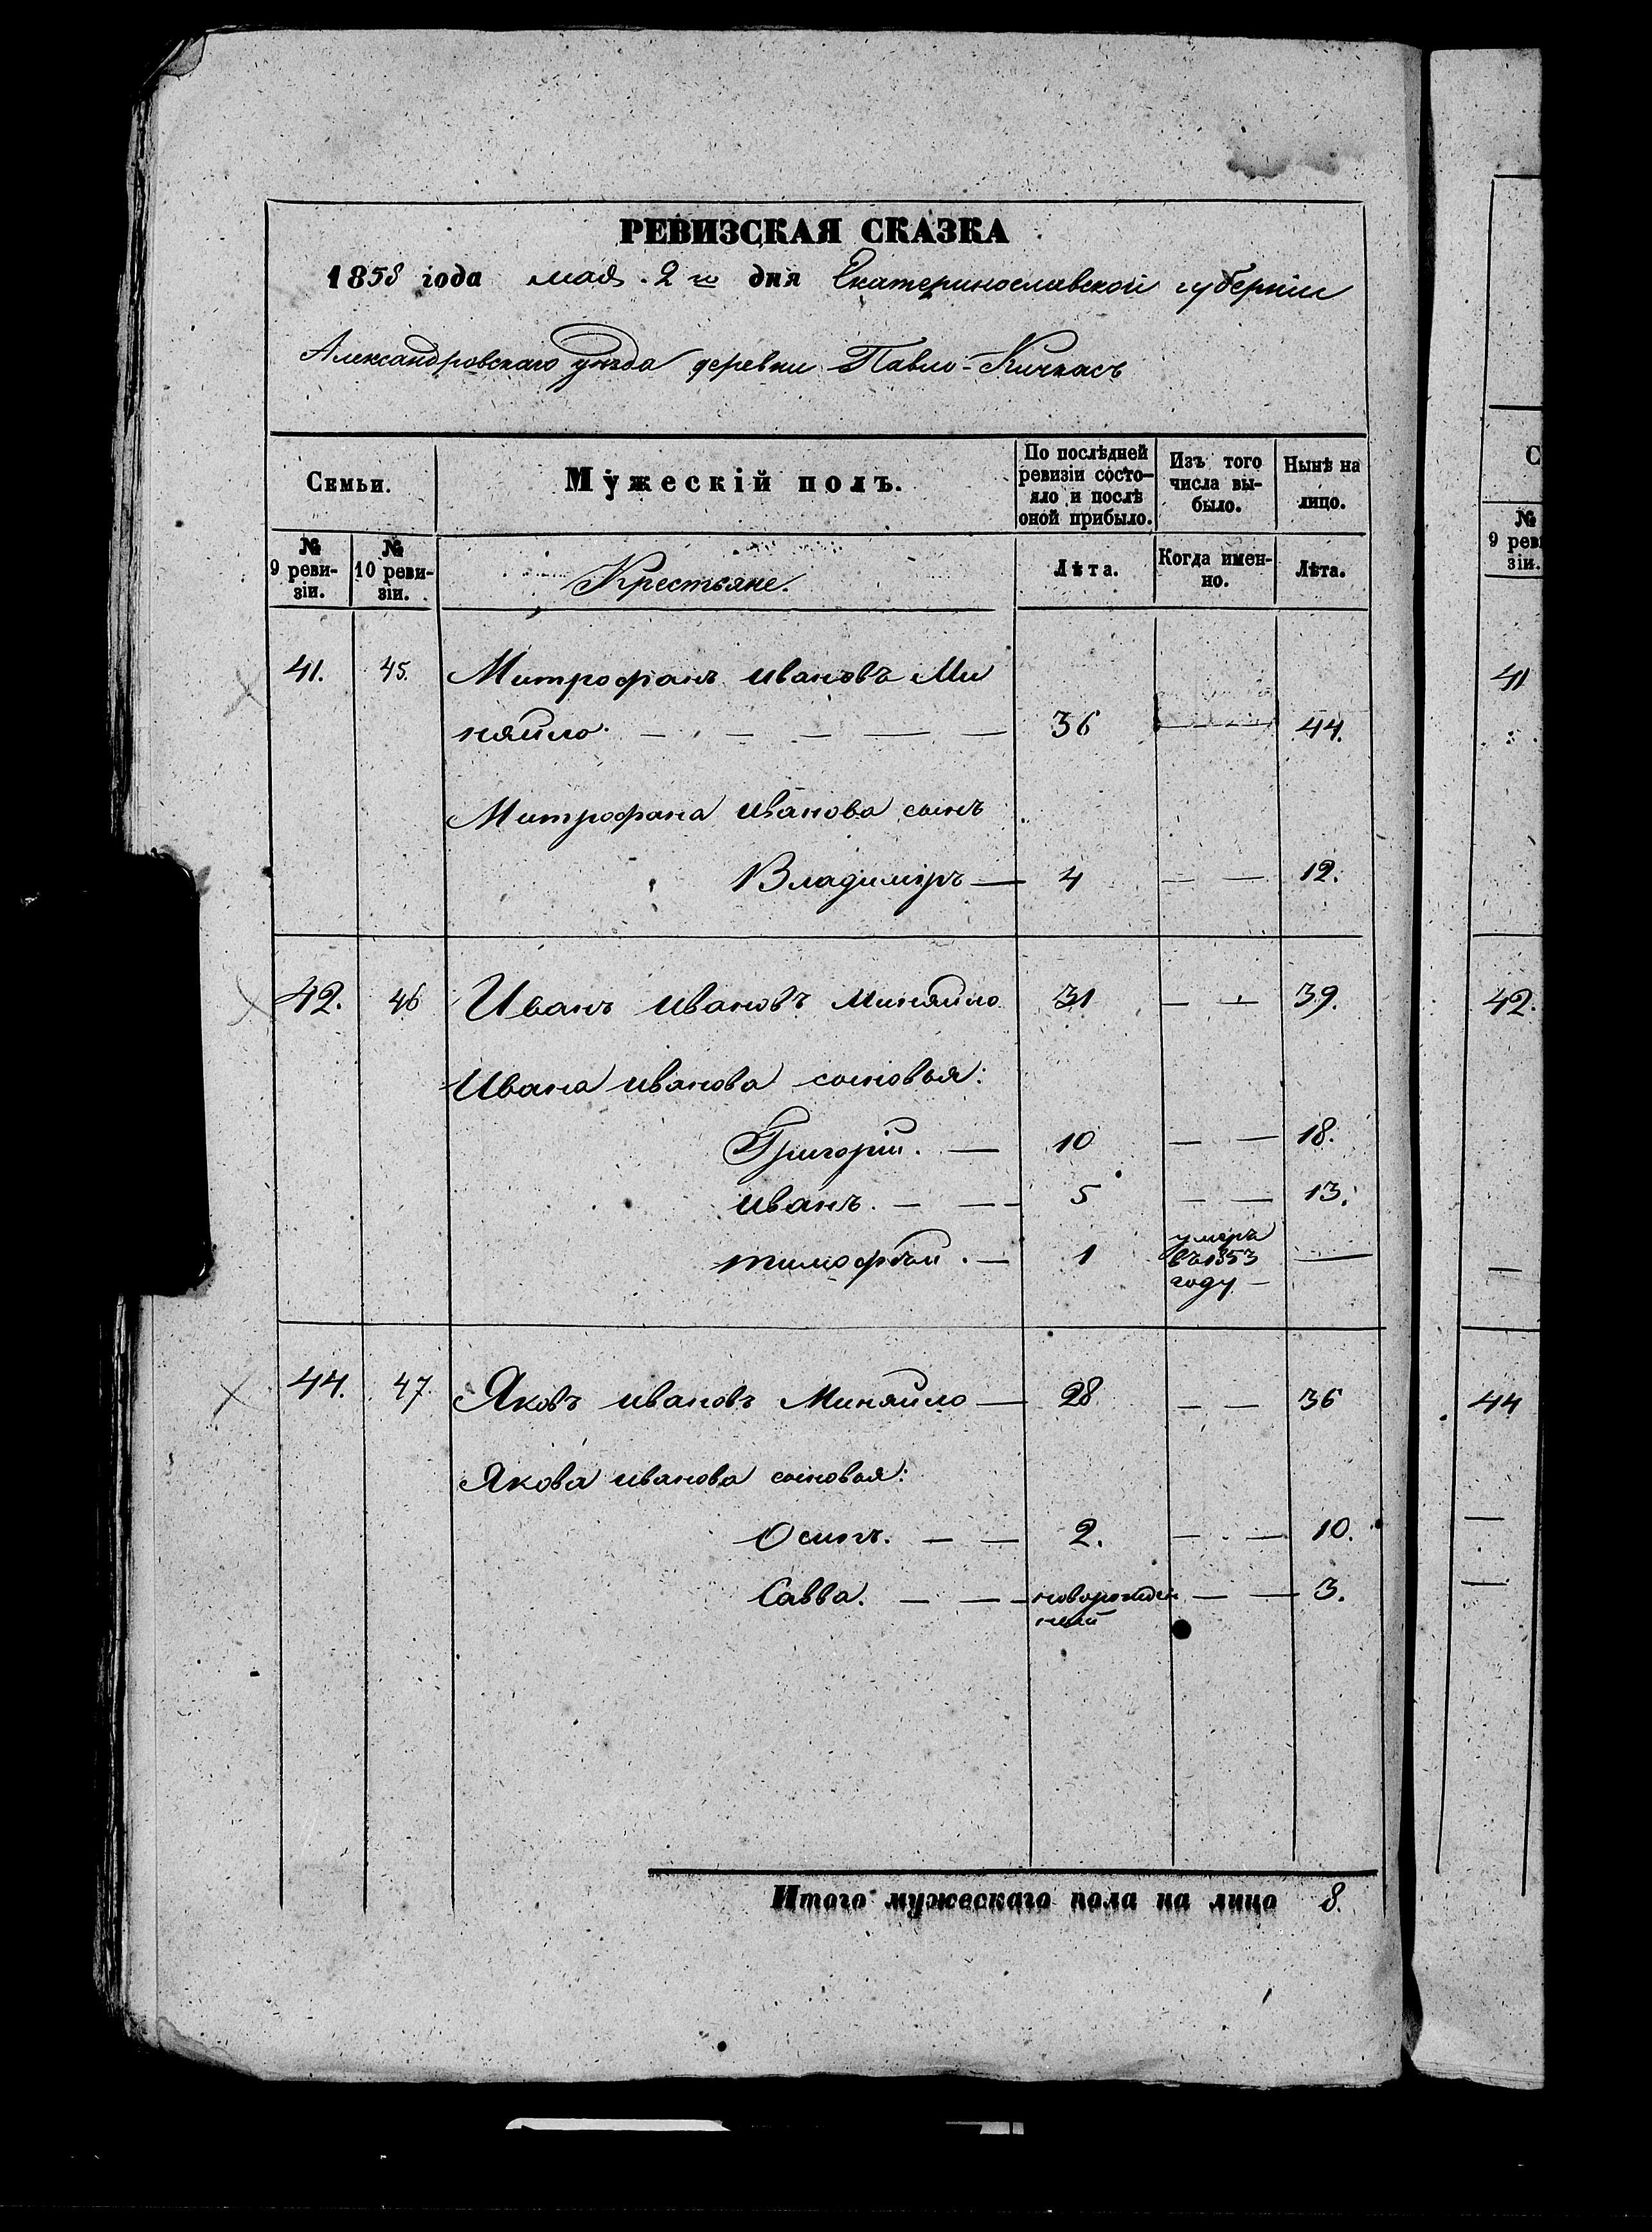 РЕВИЗСКАЯ СКАЗКА
1858 года мая 2го дня Екатеринославской губерніи
Александровскаго уѣзда деревни Павло-Кичкасъ
Семьи. Мужескій полъ. По послѣдней ревизіи состо- яло и послѣ оной прибыло. Изъ того числа вы- было. Нынѣ на лицо.
№ 9 реви- зіи. № 10 реви- зіи. Крестьяне. Лѣта. Когда имен- но. Лѣта.
41. 45. Митрофанъ Ивановъ Ми
няйло. — — — — — 36 — — — 44.
Митрофана Иванова сынъ
Владиміръ — 4 — — 12.
42. 46 Иванъ Ивановъ Миняйло 31 — — 39.
Ивана Иванова сыновья:
Григорій. — 10 — — 18.
Иванъ. — — 5 — — 13.
Тимофѣй. — 1 умеръ въ 1853 году — —
44. 47. Яковъ Ивановъ Миняйло — 28 — — 36
Якова Иванова сыновья:
Осипъ. — — 2. — — 10.
Савва. — — новорожден ный — — 3.
Итого мужескаго пола на лицо 8.
С
№
9 рев
зіи.
41
42.
44